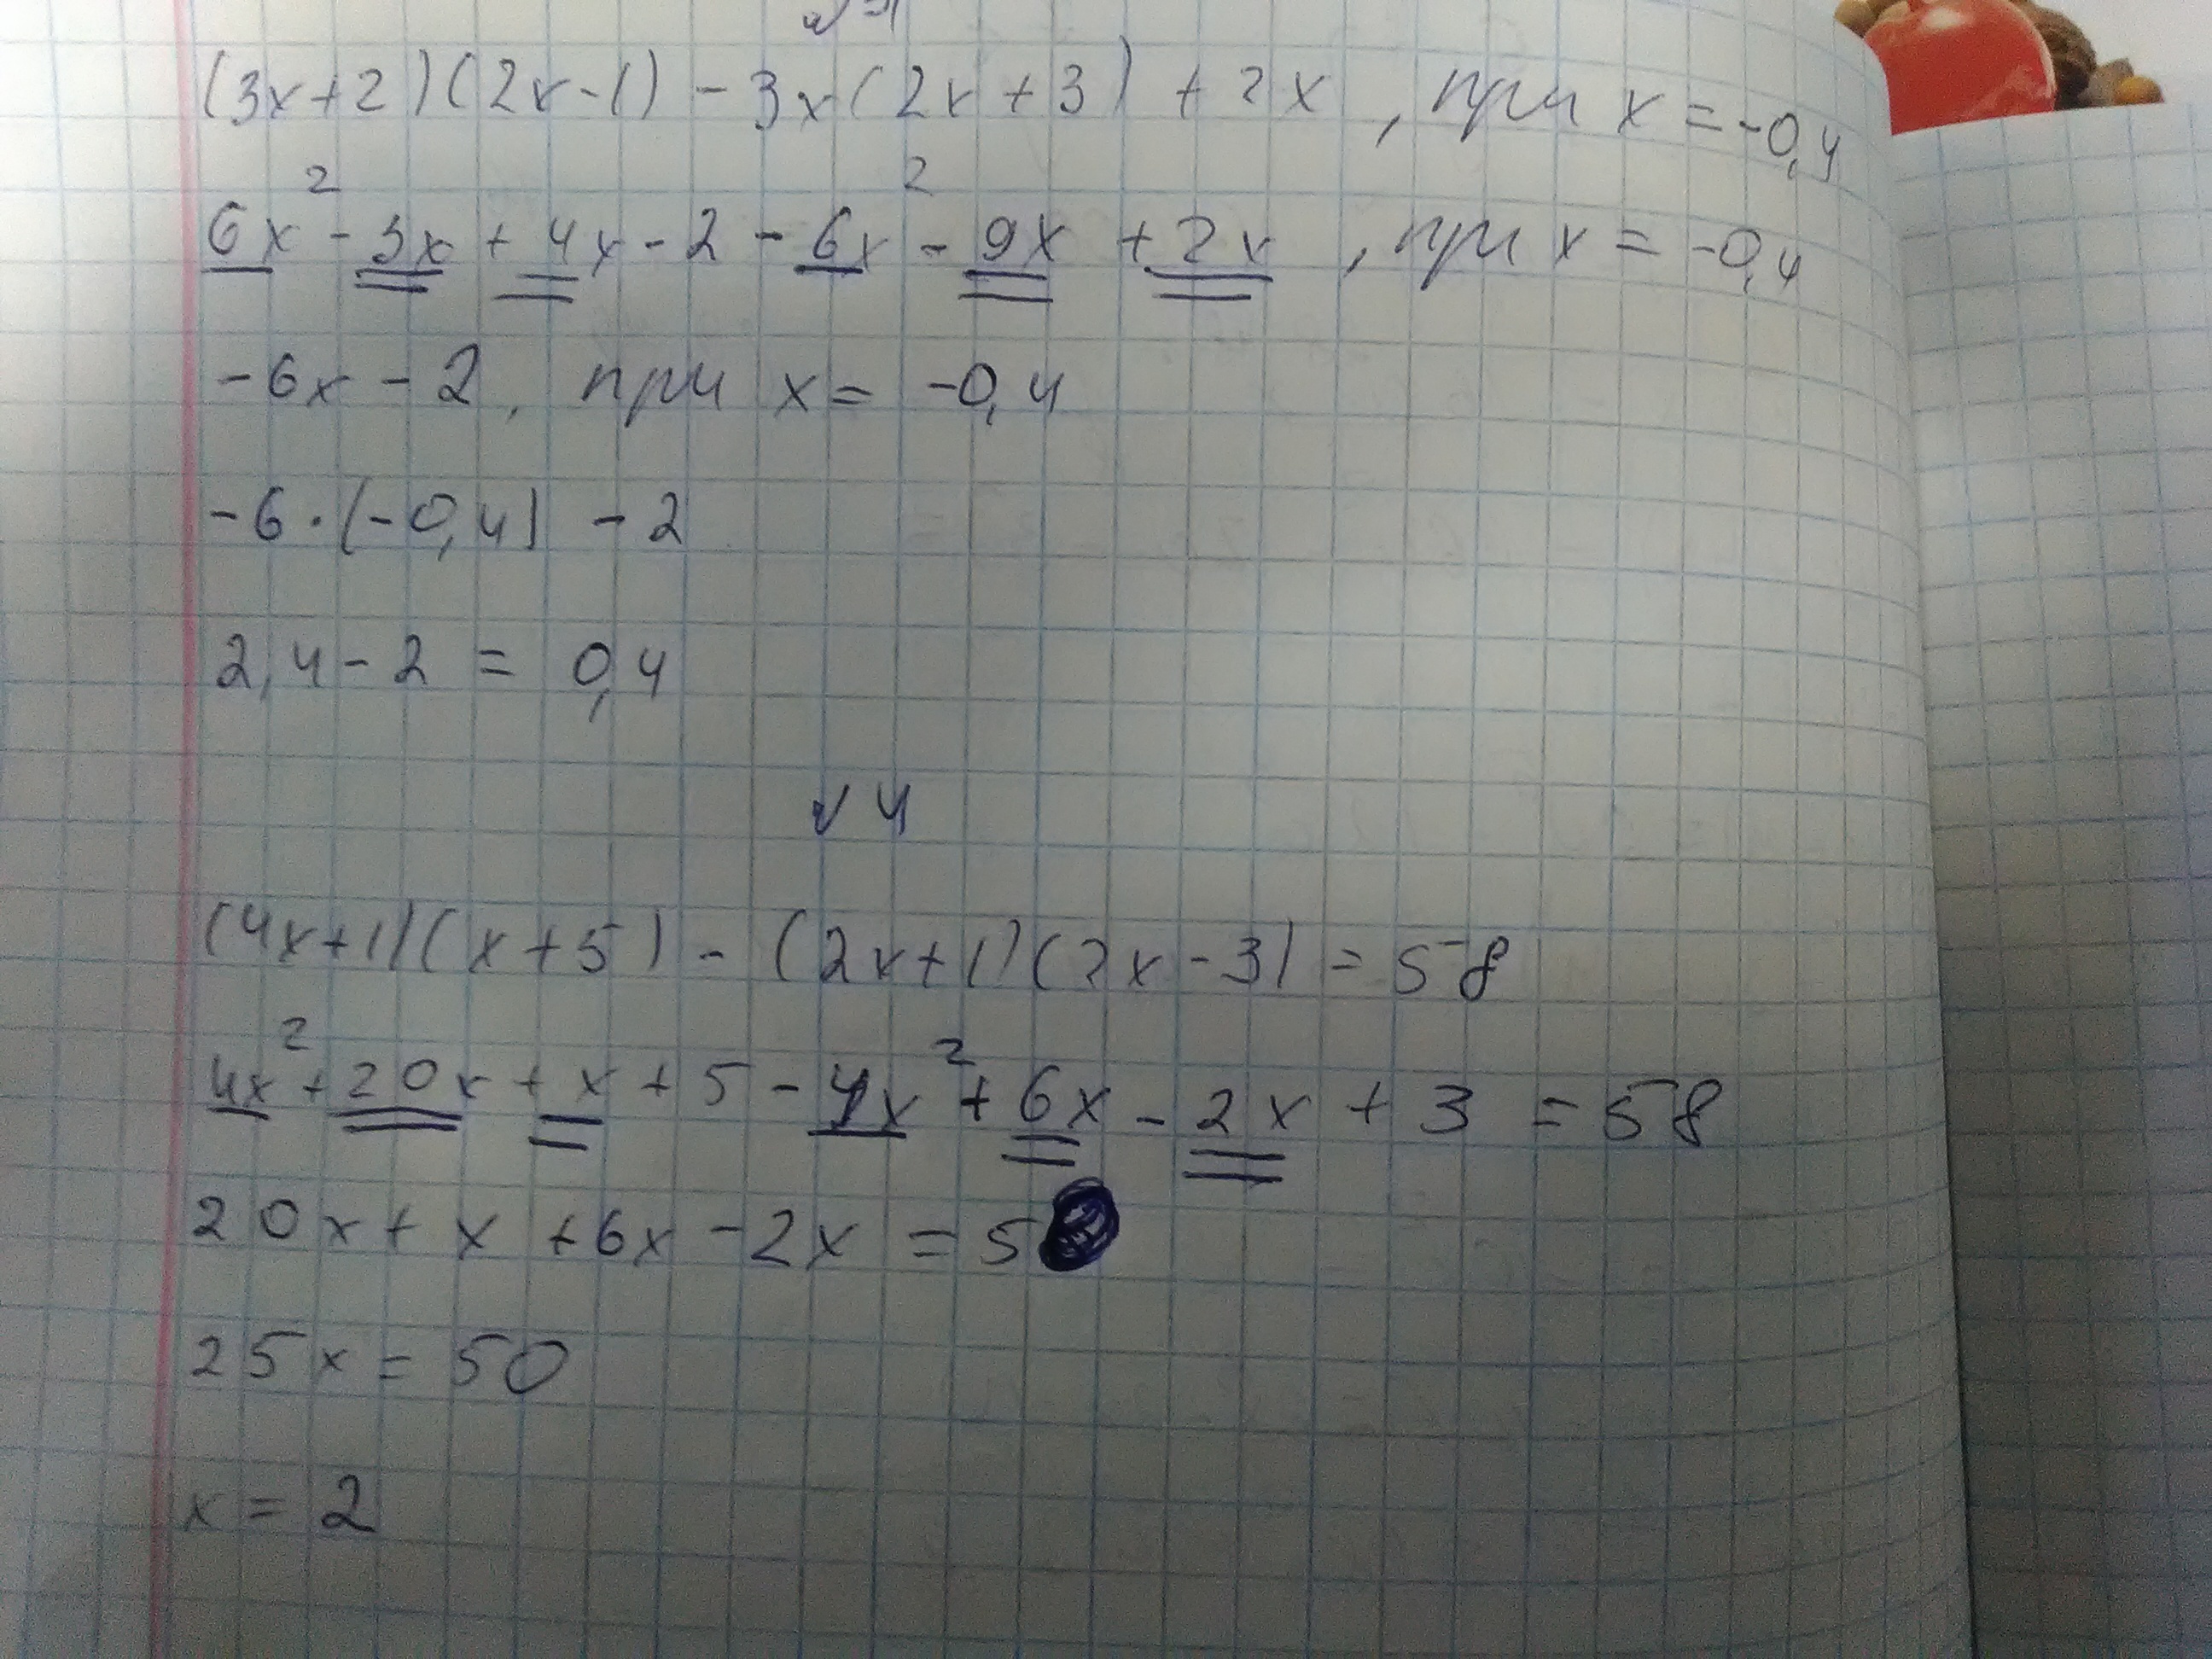 (3x+2)(2x-1) - 3x(2x+3) + 2x , при x = -0,4
6x² - 3x + 4x - 2 - 6x² - 9x + 2x , при x = -0,4
-6x - 2, при x = -0,4
-6·(-0,4) - 2
2,4 - 2 = 0,4
√ 4
(4x+1)(x+5) - (2x+1)(2x-3) = 58
4x² + 20x + x + 5 - 4x² + 6x - 2x + 3 = 58
20x + x + 6x - 2x = 5
25x = 50
x = 2